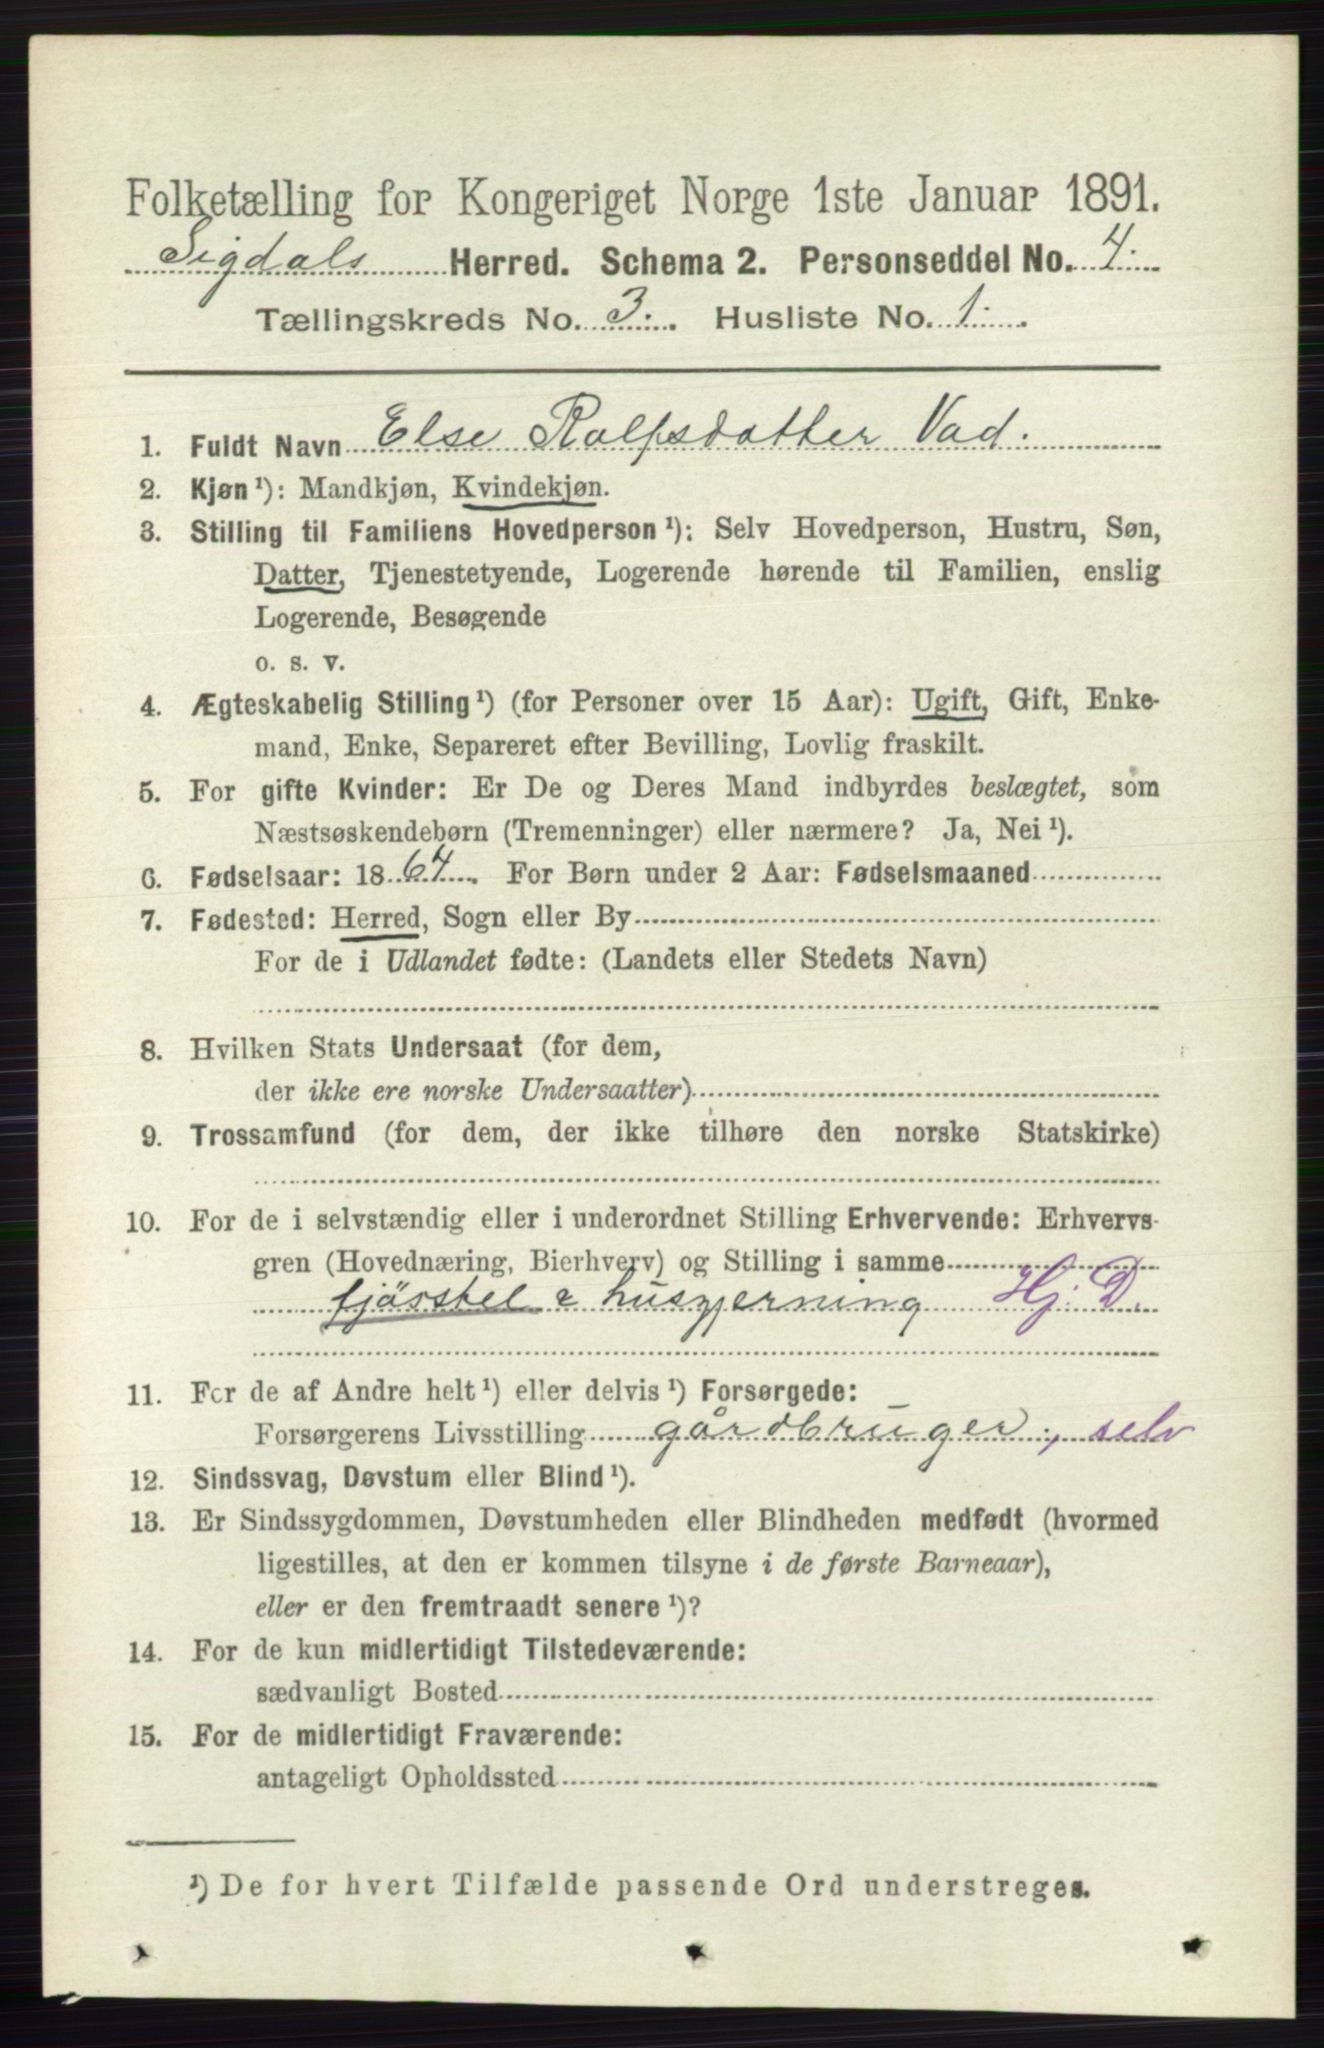 Folketælling for Kongeriget Norge 1ste Januar 1891.
Sigdals Herred. Schema 2. Personseddel No. 4.
Tællingskreds No. 3. Husliste No. 1.
1. Fuldt Navn Else Rolfsdatter Vad.
2. Kjøn ¹): Mandkjøn, Kvindekjøn.
3. Stilling til Familiens Hovedperson ¹): Selv Hovedperson, Hustru, Søn,
Datter, Tjenestetyende, Logerende hørende til Familien, enslig
Logerende, Besøgende
o. s. v.
4. Ægteskabelig Stilling ¹) (for Personer over 15 Aar): Ugift, Gift, Enke-
mand, Enke, Separeret efter Bevilling, Lovlig fraskilt.
5. For gifte Kvinder: Er De og Deres Mand indbyrdes beslægtet, som
Næstsøskendebørn (Tremenninger) eller nærmere? Ja, Nei ¹).
6. Fødselsaar: 1864. For Børn under 2 Aar: Fødselsmaaned
7. Fødested: Herred, Sogn eller By
For de i Udlandet fødte: (Landets eller Stedets Navn)
8. Hvilken Stats Undersaat (for dem,
der ikke ere norske Undersaatter)
9. Trossamfund (for dem, der ikke tilhøre den norske Statskirke)
10. For de i selvstændig eller i underordnet Stilling Erhvervende: Erhvervs-
gren (Hovednæring, Bierhverv) og Stilling i samme
fjösstel & husgjerning Hj. D.
11. For de af Andre helt ¹) eller delvis ¹) Forsørgede:
Forsørgerens Livsstilling gårdbruger, selv
12. Sindssvag, Døvstum eller Blind ¹).
13. Er Sindssygdommen, Døvstumheden eller Blindheden medfødt (hvormed
ligestilles, at den er kommen tilsyne i de første Barneaar),
eller er den fremtraadt senere ¹)?
14. For de kun midlertidigt Tilstedeværende:
sædvanligt Bosted
15. For de midlertidigt Fraværende:
antageligt Opholdssted
¹) De for hvert Tilfælde passende Ord understreges.